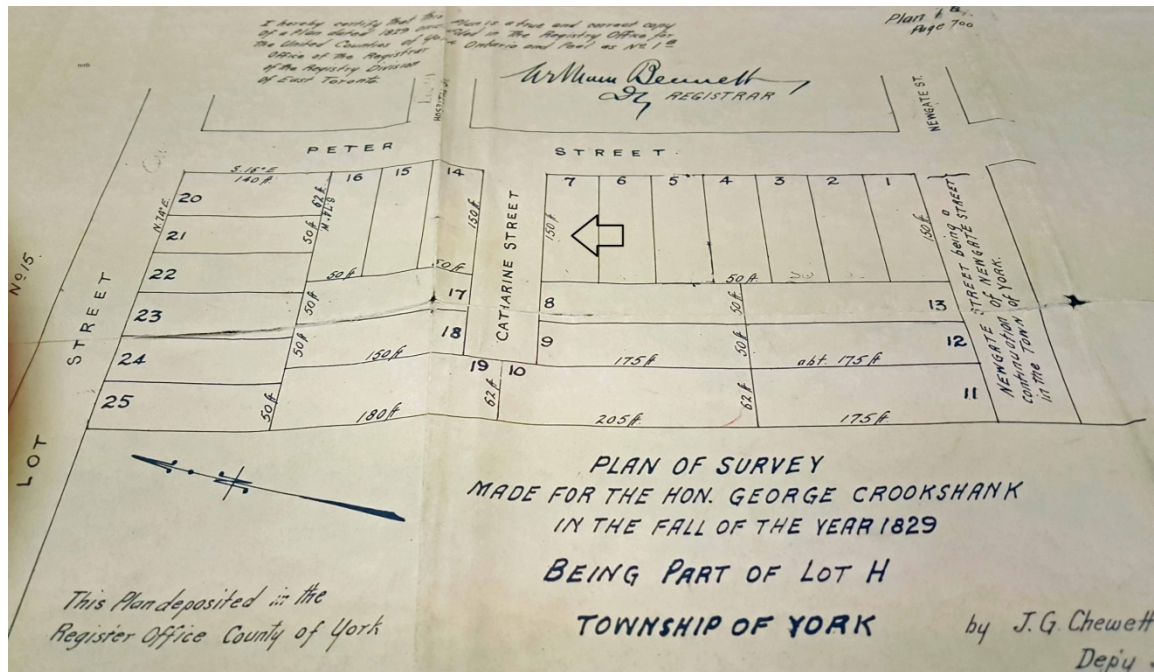 I hereby certify that this Plan is a true and correct copy
of a Plan dated 1829 in The Registry Office for
the United Counties of York Ontario and Peel as No 1
Office of the Registrar
of the Registry Division
of East Toronto.
Plan
Page 700
William Bennett
Dy REGISTRAR
HOSPITAL ST.
NEWGATE ST.
PETER STREET.
S. 16° E
140 ft
N. 74° E.
20
21
22
23
24
25
62 ft
50 ft
50 ft
50 ft
50 ft
16
15
14
150 ft
50 ft
50 ft
17
18
19
150 ft
180 ft
62 ft
CATIARINE STREET
7
6
5
4
3
2
1
150 ft
150 ft
50 ft
8
9
10
50 ft
50 ft
62 ft
175 ft
205 ft
13
12
11
abt. 175 ft
175 ft
NEWGATE STREET being a
continuation of NEWGATE STREET
in the TOWN of YORK.
No 15.
LOT STREET
PLAN OF SURVEY
MADE FOR THE HON. GEORGE CROOKSHANK
IN THE FALL OF THE YEAR 1829
BEING PART OF LOT H
TOWNSHIP OF YORK
by J. G. Chewett
Dep'y
This Plan deposited in the
Register Office County of York